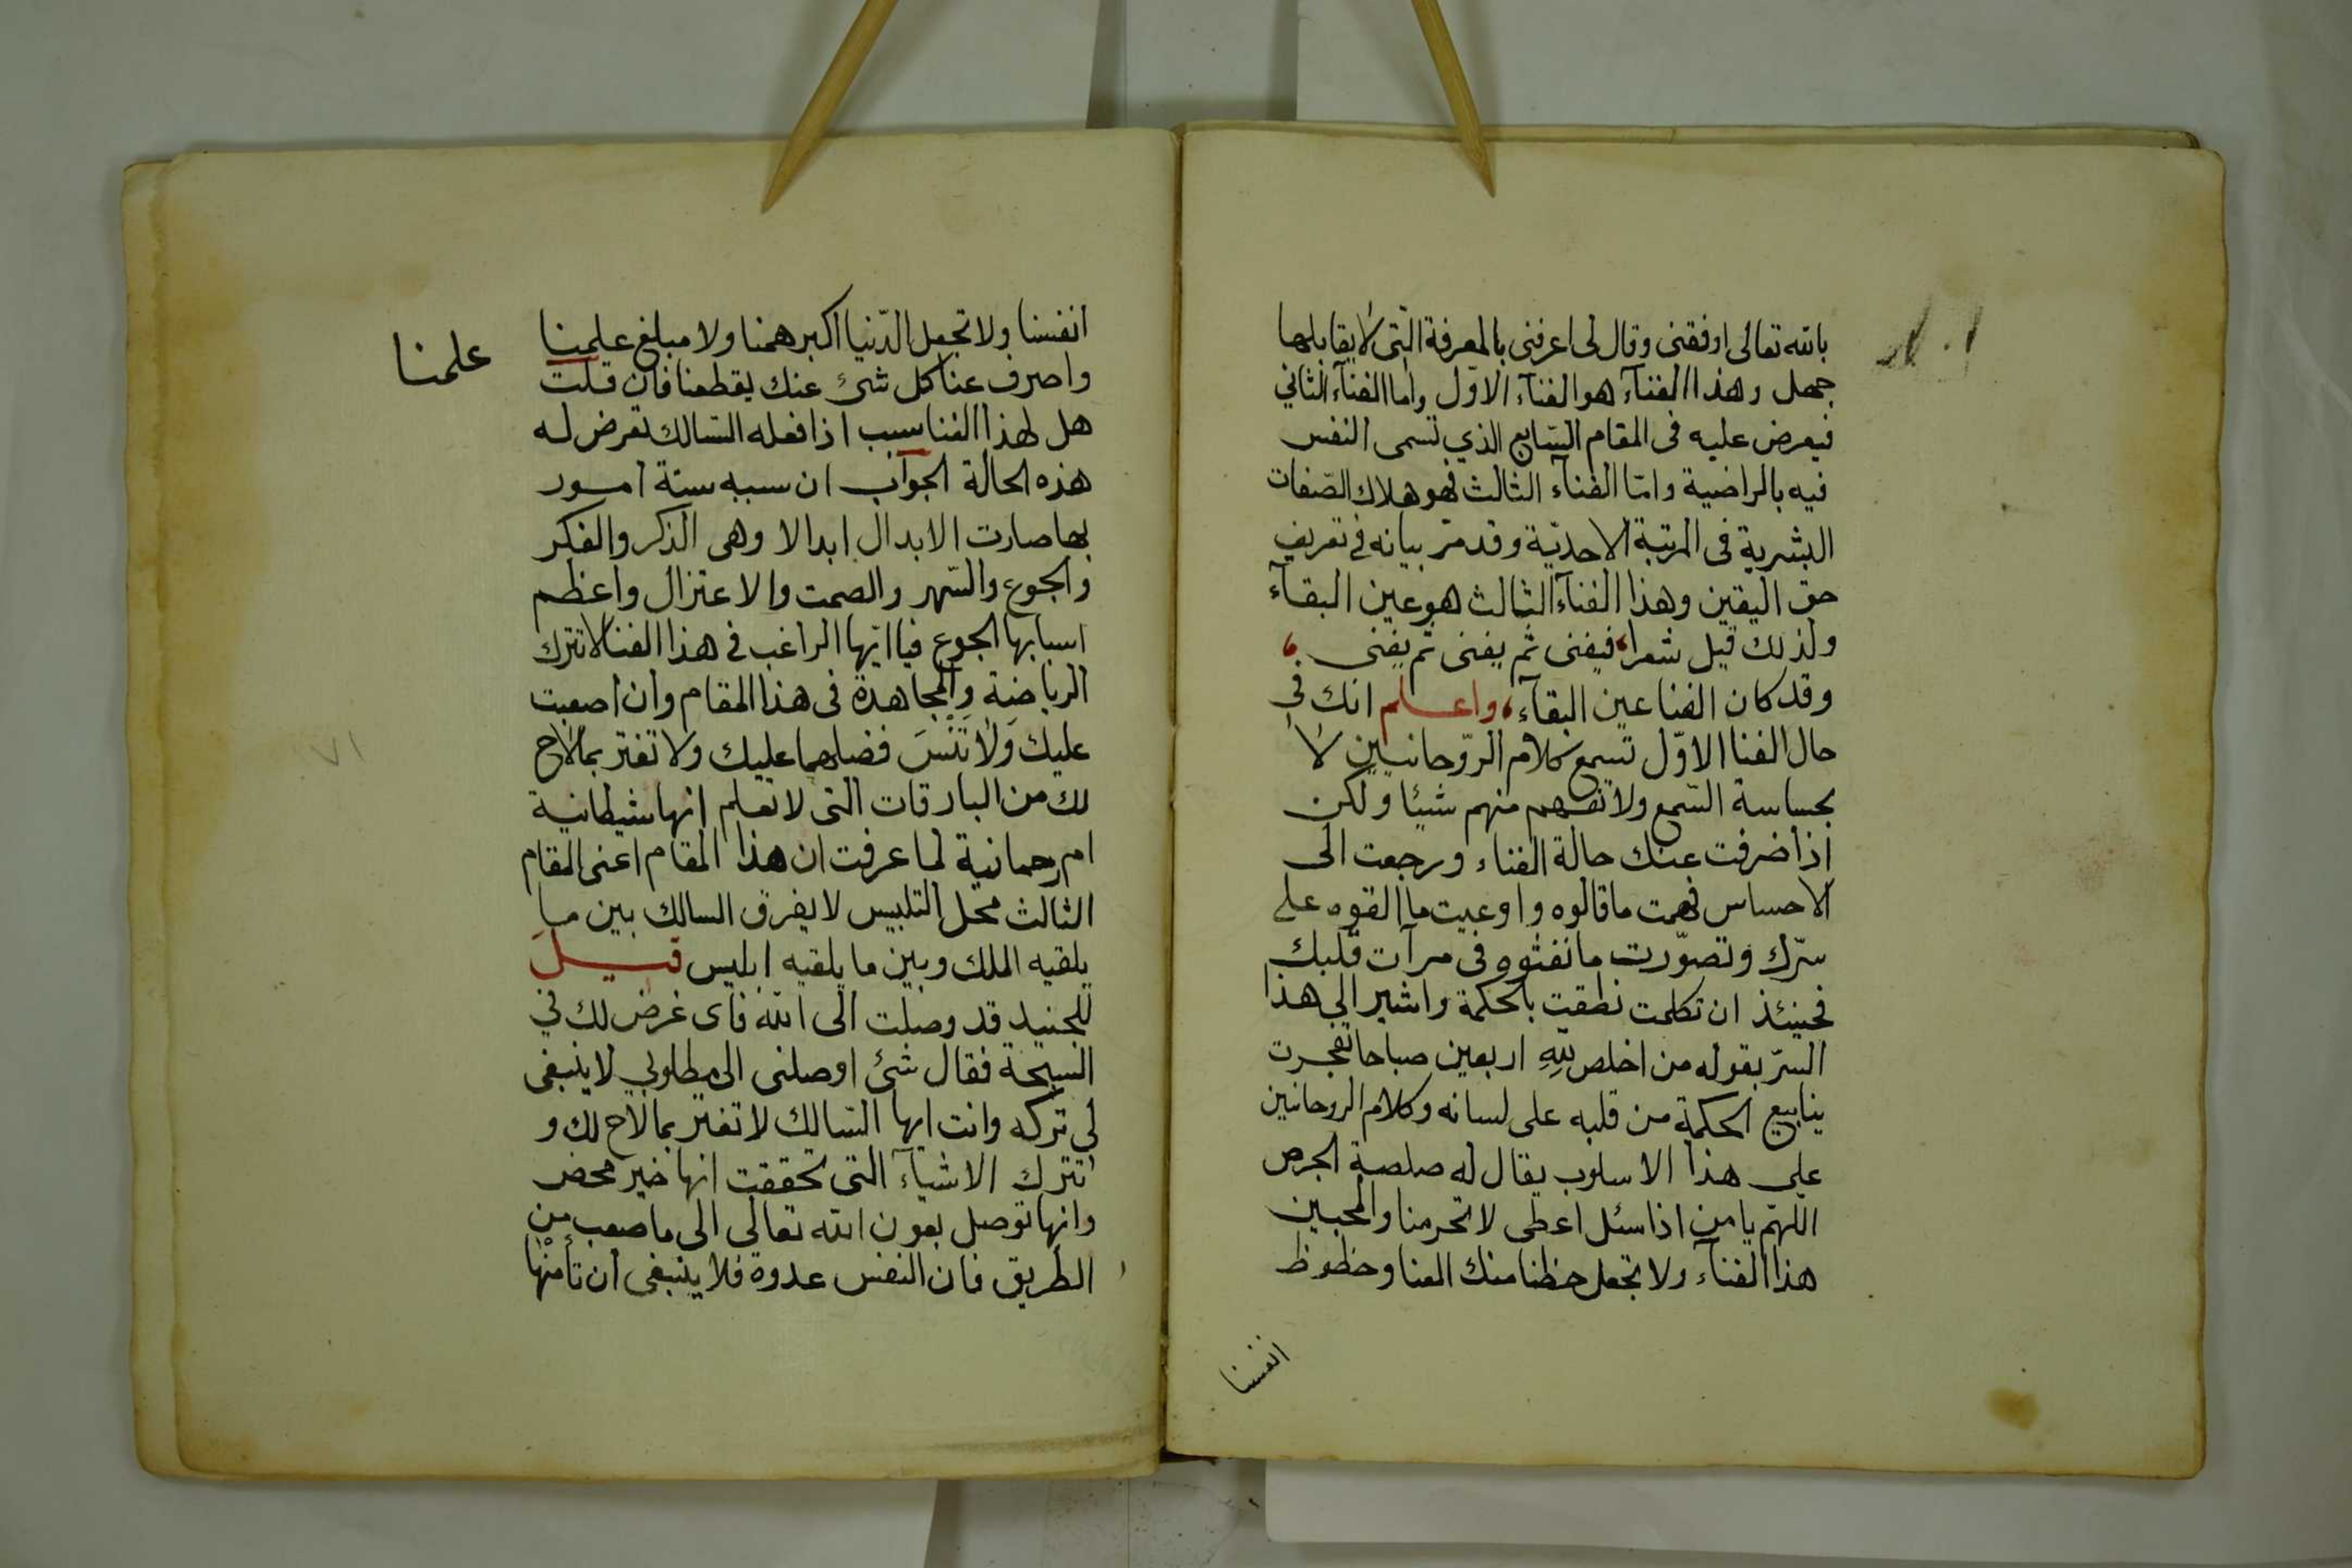 بالله تعالى اوقفنى وقال لى اعرفنى بالمعرفة التى لا يقابلها
جهل وهذا الفنآء هو الفنآء الاوّل واما الفنآء الثاني
فيعرض عليه فى المقام السّابع الذي تسمى النفس
فيه بالراضية وامّا الفنآء الثالث فهو هلاك الصّفات
البشرية فى المرتبة الاحديّة وقد مرّ بيانه فى تعريف
حق اليقين وهذا الفنآء الثالث هو عين البقآء
ولذلك قيل شعرا، فيفنى ثم يفنى ثم يفنى ،
وقد كان الفنا عين البقآء، واعلم انك فى
حال الفنا الاوّل تسمع كلام الرّوحانيين لا
بحساسة السّمع ولا تفهم منهم شيئا ولكن
اذا صرفت عنك حالة الفناء ورجعت الى
الاحساس فهمت ما قالوه واوعيت ما القوه على
سرّك وتصوّرت ما نفثوه فى مرآت قلبك
فحينئذ ان تكلمت نطقت بالحكمة واشير الى هذا
السرّ بقوله من اخلص لله اربعين صباحا تفجرت
ينابيع الحكمة من قلبه على لسانه وكلام الروحانيين
على هذا الاسلوب يقال له صلصة الجرص
اللهمّ يا من اذا سئل اعطى لا تحرمنا والمحبين
هذا الفنآء ولا تجعل حظنا منك المنا وحظوظ
انفسنا
انفسنا ولا تجعل الدّنيا اكبر همنا ولا مبلغ علمنا
علمنا
واصرف عنا كل شئ عنك يقطعنا فان قلت
هل لهذا الفنا سبب اذا فعله السّالك تعرض له
هذه الحالة الجوآب ان سببه ستة امور
بها صارت الابدال ابدالا وهى الذكر والفكر
والجوع والسّهر والصمت والاعتزال واعظم
اسبابها الجوع فيا ايّها الراغب فى هذا الفنا لا تترك
الرياضة والمجاهدة فى هذا المقام وان اصعبت
عليك وَلَا تَنْسَ فضلهما عليك ولا تغتر بما لاح
لك من البارقات التى لا تعلم انها شيطانية
ام رحمانية لما عرفت ان هذا المقام اعنى المقام
الثالث محل التلبيس لا يفرق السالك بين ما
يلقيه الملك وبين ما يلقيه ابليس قيل
للجنيد قد وصلت الى الله فاى غرض لك في
السبحة فقال شئ اوصلنى الى مطلوبي لا ينبغى
لي تركه وانت ايها السّالك لا تغتر بما لاح لك و
تترك الاشيآء التى تحققت انها خير محض
وانها توصل بعون الله تعالى الى ما صعب من
الطريق فان النفس عدوة فلا ينبغى ان تأمنها
٧١